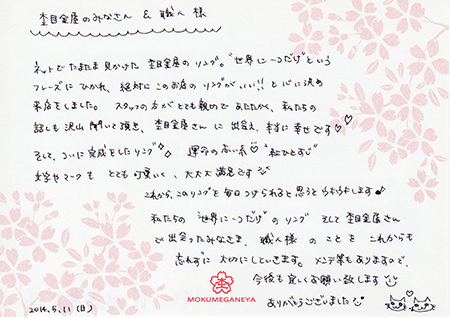 杢目金屋のみなさん & 職人様
ネットでたまたま見かけた 杢目金屋のリング。"世界に一つだけ"という
フレーズにひかれ、絶対にこのお店のリングがいい!!と心に決め
来店をしました。スタッフの方がとても親切であたたかく、私たちの
話しも沢山聞いて頂き、杢目金屋さんに出会え、本当に幸せです♡♡
そして、ついに完成をしたリング 運命の赤い糸♡ "紅ひとすじ"
文字やマークもとても可愛いく、大大大満足です
これから、このリングを毎日つけられると思うとわくわくします♪
私たちの"世界に一つだけ"のリング そして杢目金屋さん
で出会ったみなさま、職人様のことをこれからも
忘れずに大切にしていきます。メンテ等もありますので、
今後も宜しくお願い致します
ありがとうございました
MOKUMEGANEYA
2014.5.11 (日)